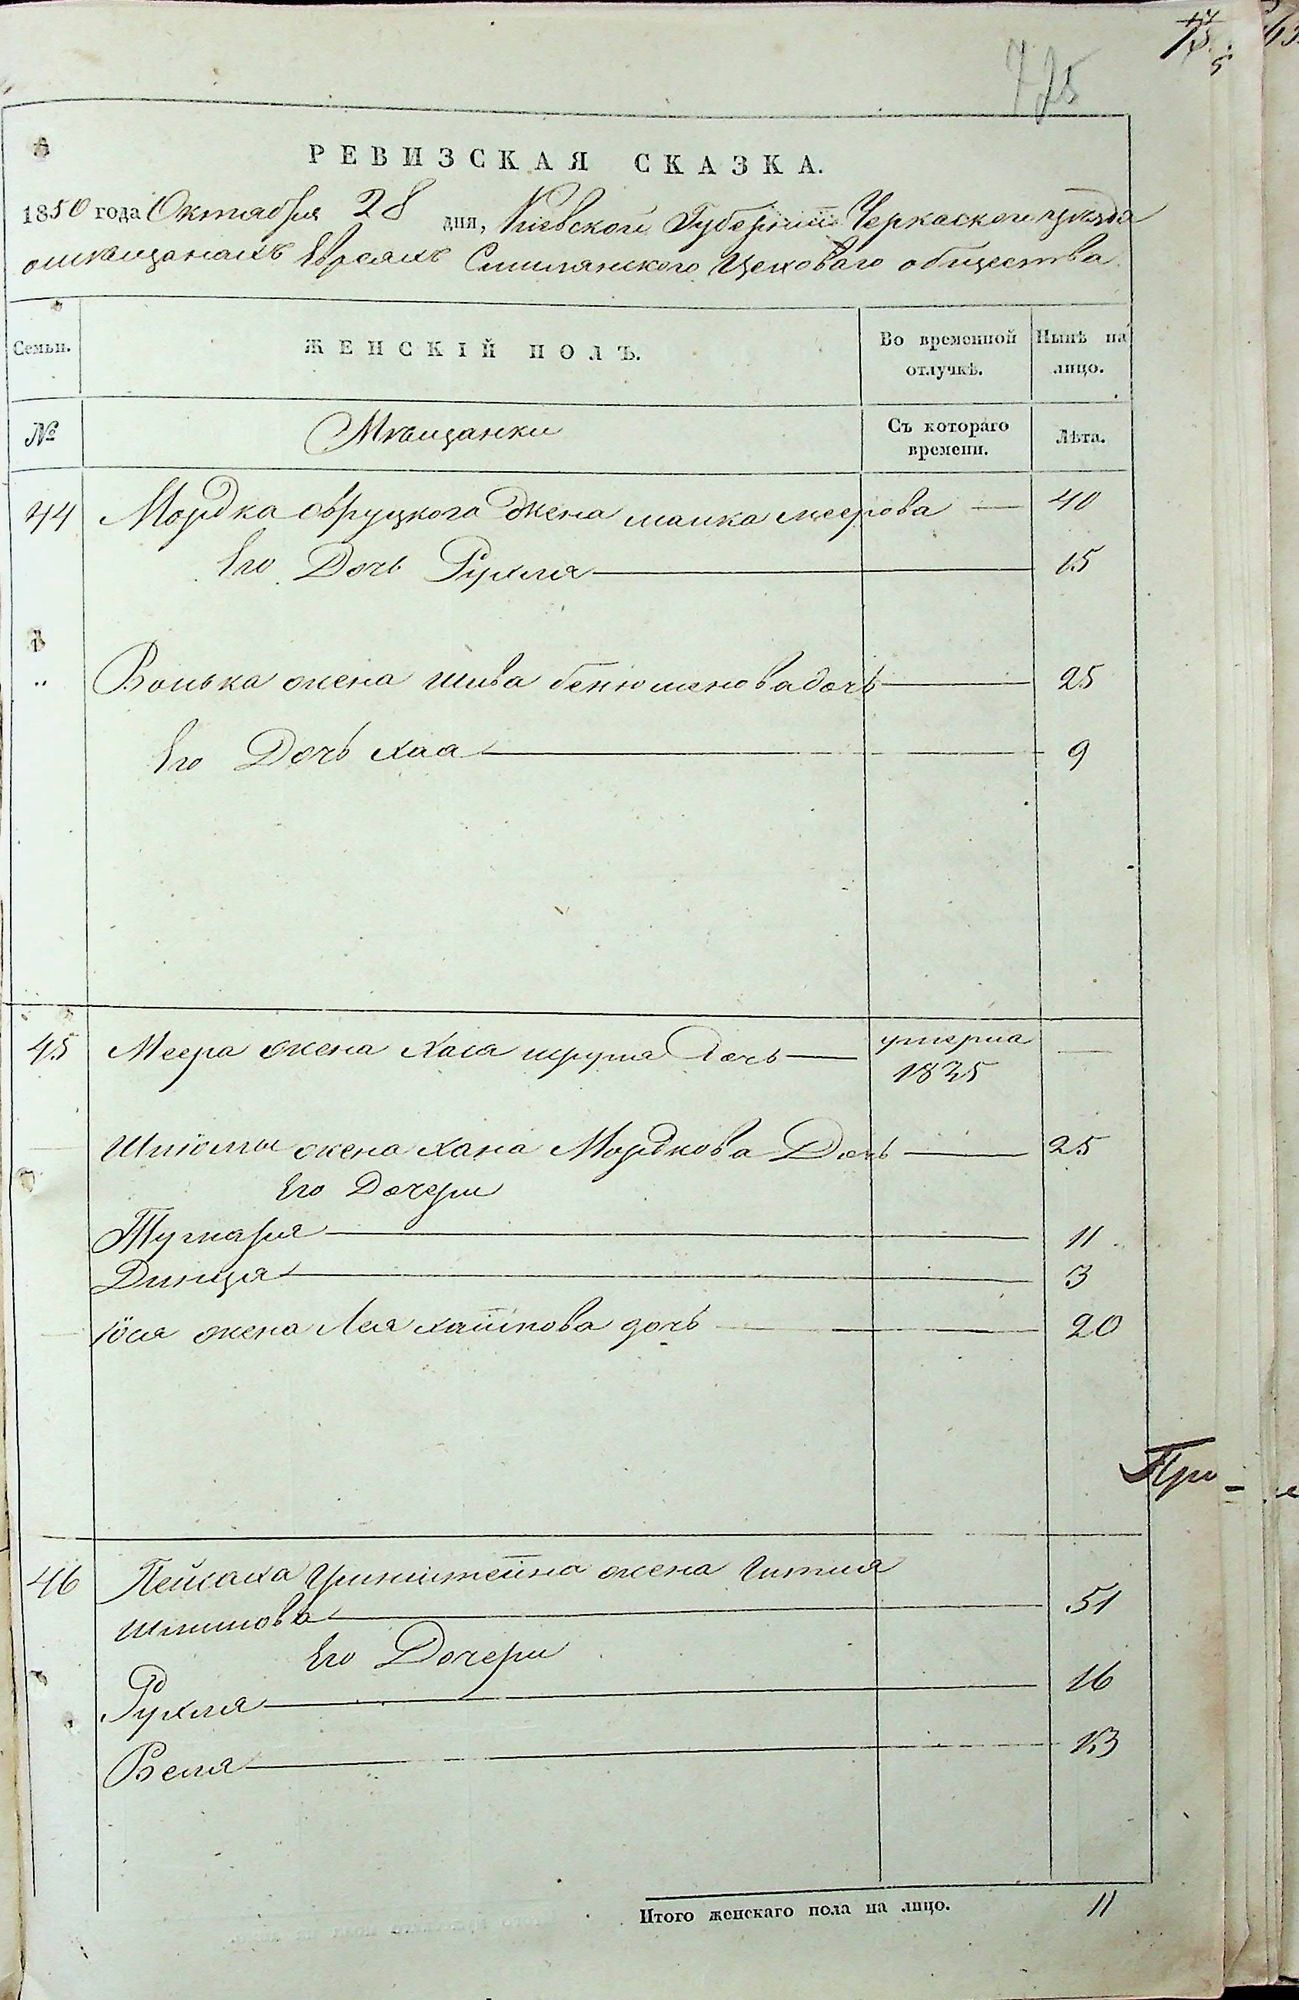 725
РЕВИЗСКАЯ СКАЗКА.
1850 года Октября 28 дня, Кіевской Губерніи Черкаского уѣзда
о мѣщанахъ Евреяхъ Смилянского Цеховаго общества
Семьи. ЖЕНСКІЙ ПОЛЪ. Во временной отлучкѣ. Нынѣ на лицо.
№ Мѣщанки Съ котораго времени. Лѣта.
44 Мордка Овруцкого жена малка меерова — 40
Его Дочь Рухля 15
„ Волька жена шива бенюменова дочь 25
Его Дочь хая 9
45 Меера жена Хася Дочь — умерла 1835 —
Шліомы жена хана Мордкова Дочь — 25
Его Дочери
11
Динця 3
Іося жена Лея дочь 20
46 Пейсаха Гринштейна жена Гитля
51
Его Дочери
Рухля 16
Веля 13
При
Итого женскаго пола на лицо. 11